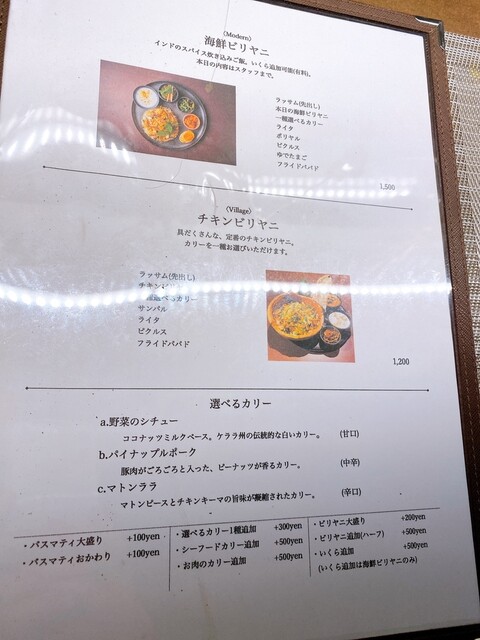 〈Modern〉
海鮮ビリヤニ
インドのスパイス炊き込みご飯。いくら追加可能(有料)。
本日の内容はスタッフまで。
ラッサム(先出し)
本日の海鮮ビリヤニ
一種選べるカリー
ライタ
ポリヤル
ピクルス
ゆでたまご
フライドパパド
1,500
〈Village〉
チキンビリヤニ
具だくさんな、定番のチキンビリヤニ。
カリーを一種お選びいただけます。
ラッサム(先出し)
チキンビリヤニ
選べるカリー
サンバル
ライタ
ピクルス
フライドパパド
1,200
選べるカリー
a.野菜のシチュー
ココナッツミルクベース。ケララ州の伝統的な白いカリー。 (甘口)
b.パイナップルポーク
豚肉がごろごろと入った、ピーナッツが香るカリー。 (中辛)
c.マトンララ
マトンピースとチキンキーマの旨味が凝縮されたカリー。 (辛口)
・バスマティ大盛り +100yen
・バスマティおかわり +100yen
・選べるカリー1種追加 +300yen
・シーフードカリー追加 +500yen
・お肉のカリー追加 +500yen
・ビリヤニ大盛り +200yen
・ビリヤニ追加(ハーフ) +500yen
・いくら追加 +500yen
(いくら追加は海鮮ビリヤニのみ)